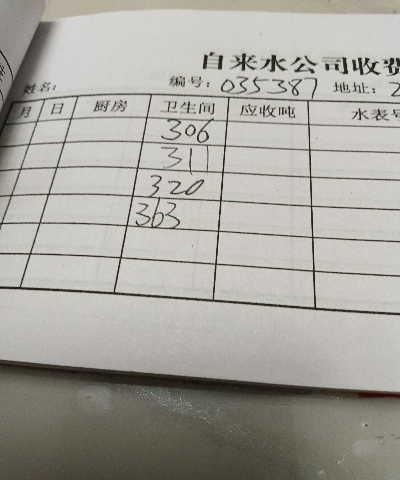 自来水公司收费
姓名: 编号: 035387 地址: 2
月 日 厨房 卫生间 应收吨 水表号
306
311
320
363